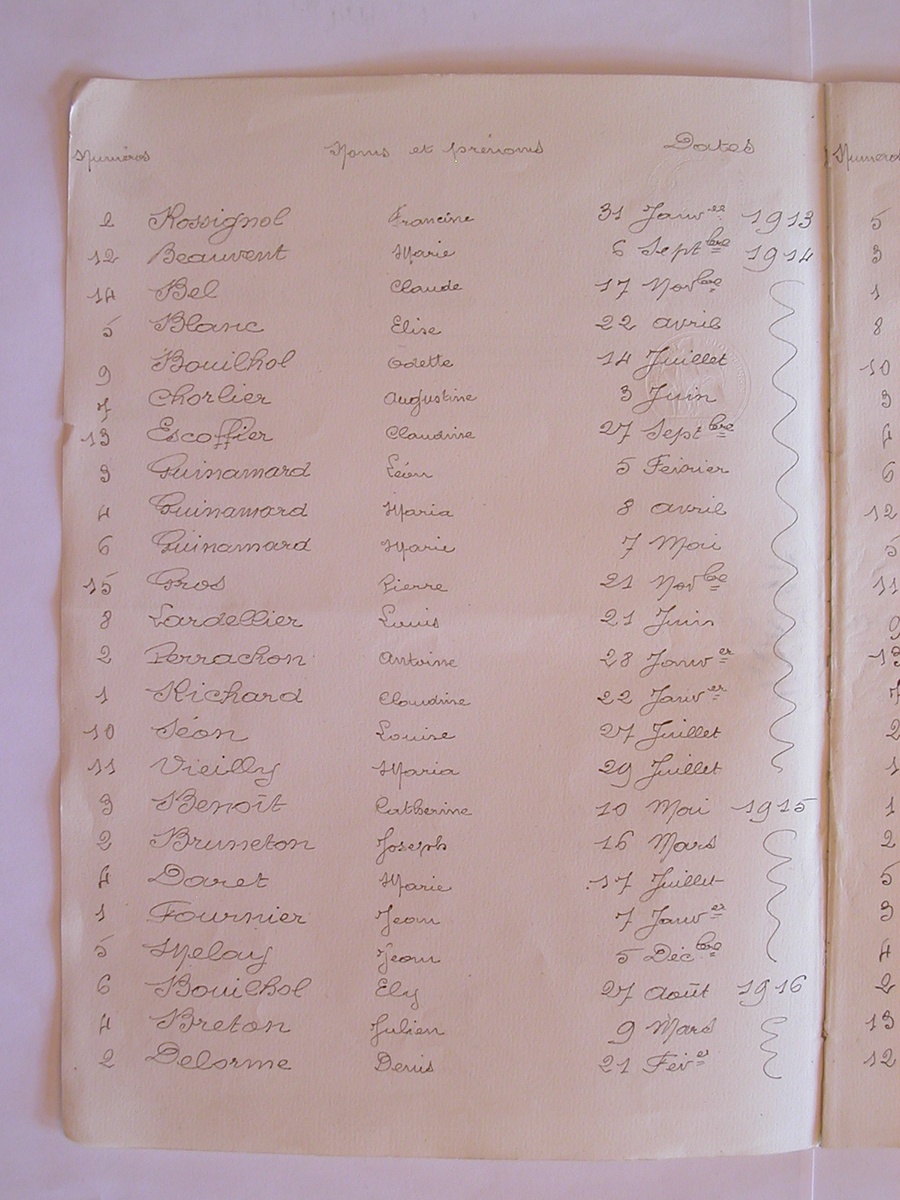 Numéros Noms et prénoms Dates Numéros
2 Rossignol Francine 31 Janv er 1913 5
12 Beauvent Marie 6 Sept bre 1914 3
14 Bel Claude 17 Nov bre 1
5 Blanc Elise 22 avril 8
9 Bouilhol Odette 14 Juillet 10
7 Chorlier Augustine 3 Juin 9
13 Escoffier Claudine 27 Sept bre 4
3 Guinamard Léon 5 Février 6
4 Guinamard Maria 8 avril 12
6 Guinamard Marie 7 Mai 5
15 Gros Pierre 21 Nov bre 11
8 Lardellier Louis 21 Juin 9
2 Perrachon Antoine 28 Janv er 13
1 Richard Claudine 22 Janv er 7
10 Séon Louise 27 Juillet 2
11 Vieilly Maria 29 Juillet 1
3 Benoît Catherine 10 Mai 1915 1
2 Bruneton Joseph 16 Mars 2
4 Daret Marie 17 Juillet 5
1 Fournier Jean 7 Janv er 3
5 Melay Jean 5 Déc bre 4
6 Bouilhol Ely 27 Août 1916 2
4 Breton Julien 9 Mars 13
2 Delorme Denis 21 Fév er 12